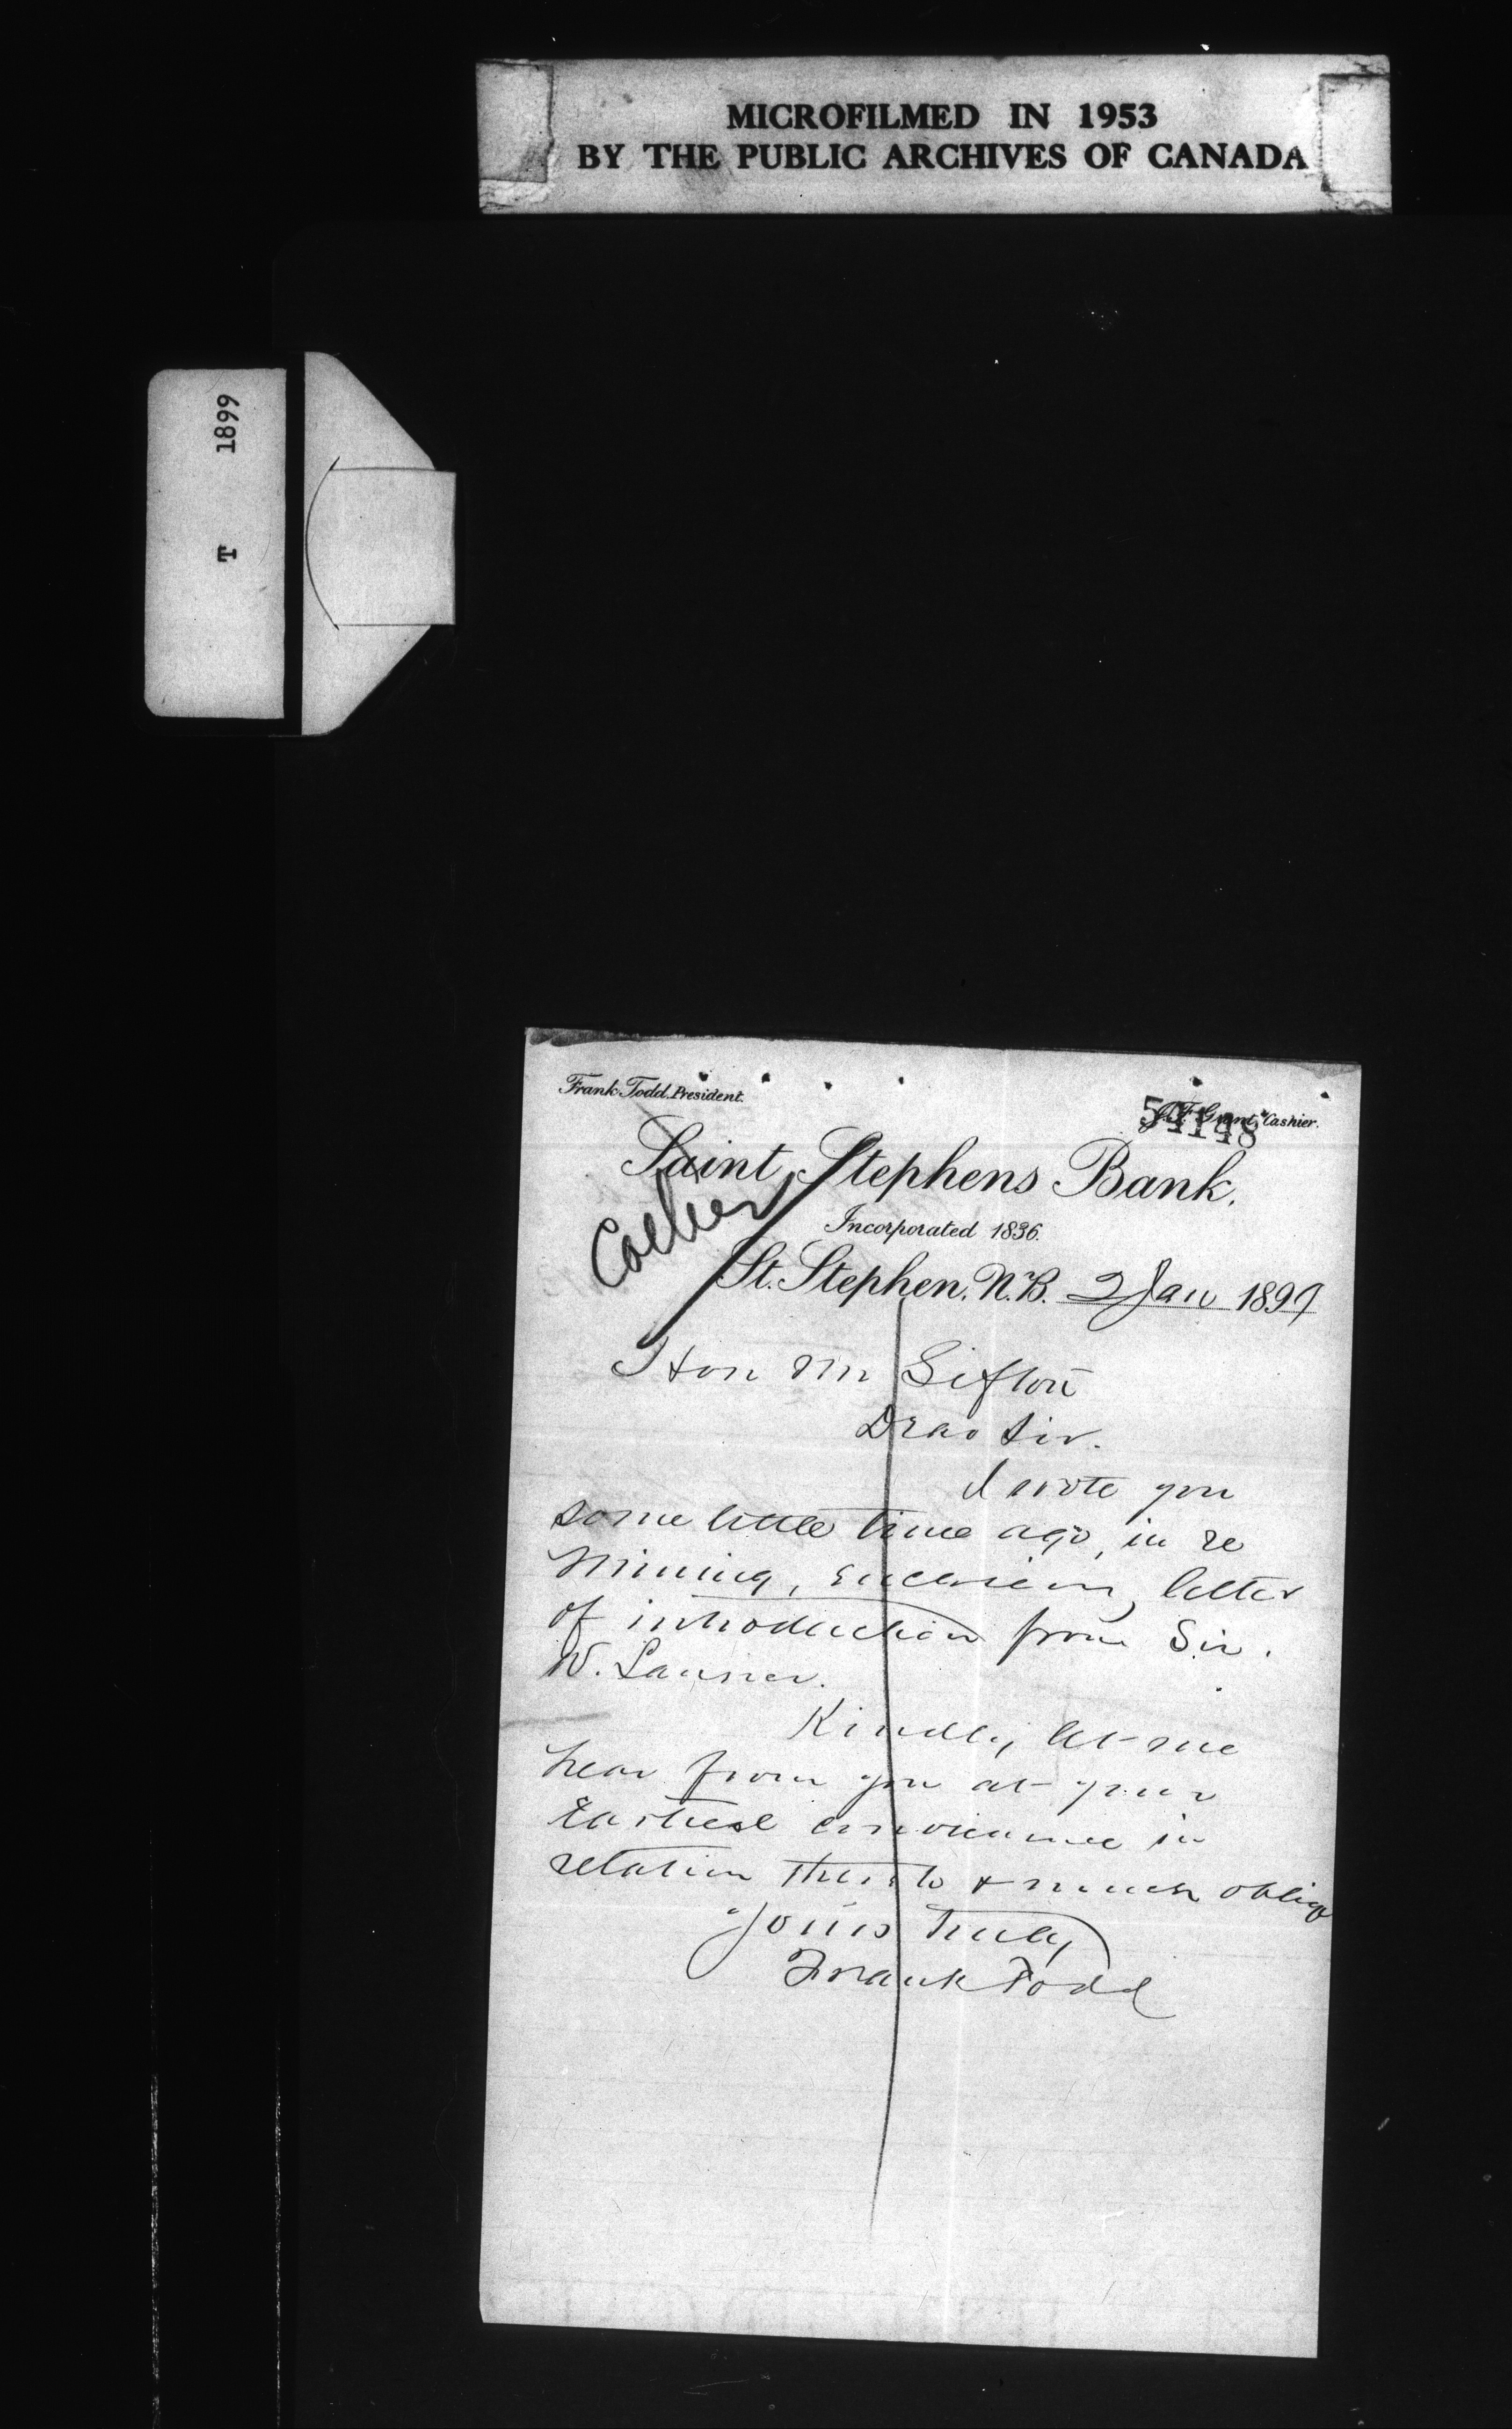 MICROFILMED IN 1953
BY THE PUBLIC ARCHIVES OF CANADA
T 1899
Frank Todd, President.
J.F. Grant, Cashier.
54148
Saint Stephens Bank.
Incorporated 1836.
St. Stephen, N.B. 2 Jan 1899
Hon Mr Sifton
Dear Sir.
I wrote you
some little time ago, in re
Mining, letter
of introduction from Sir.
W. Laurier.
Kindly let me
hear from you at your
Earliest convenience in
relation thereto & much oblige
Yours truly
Frank Todd